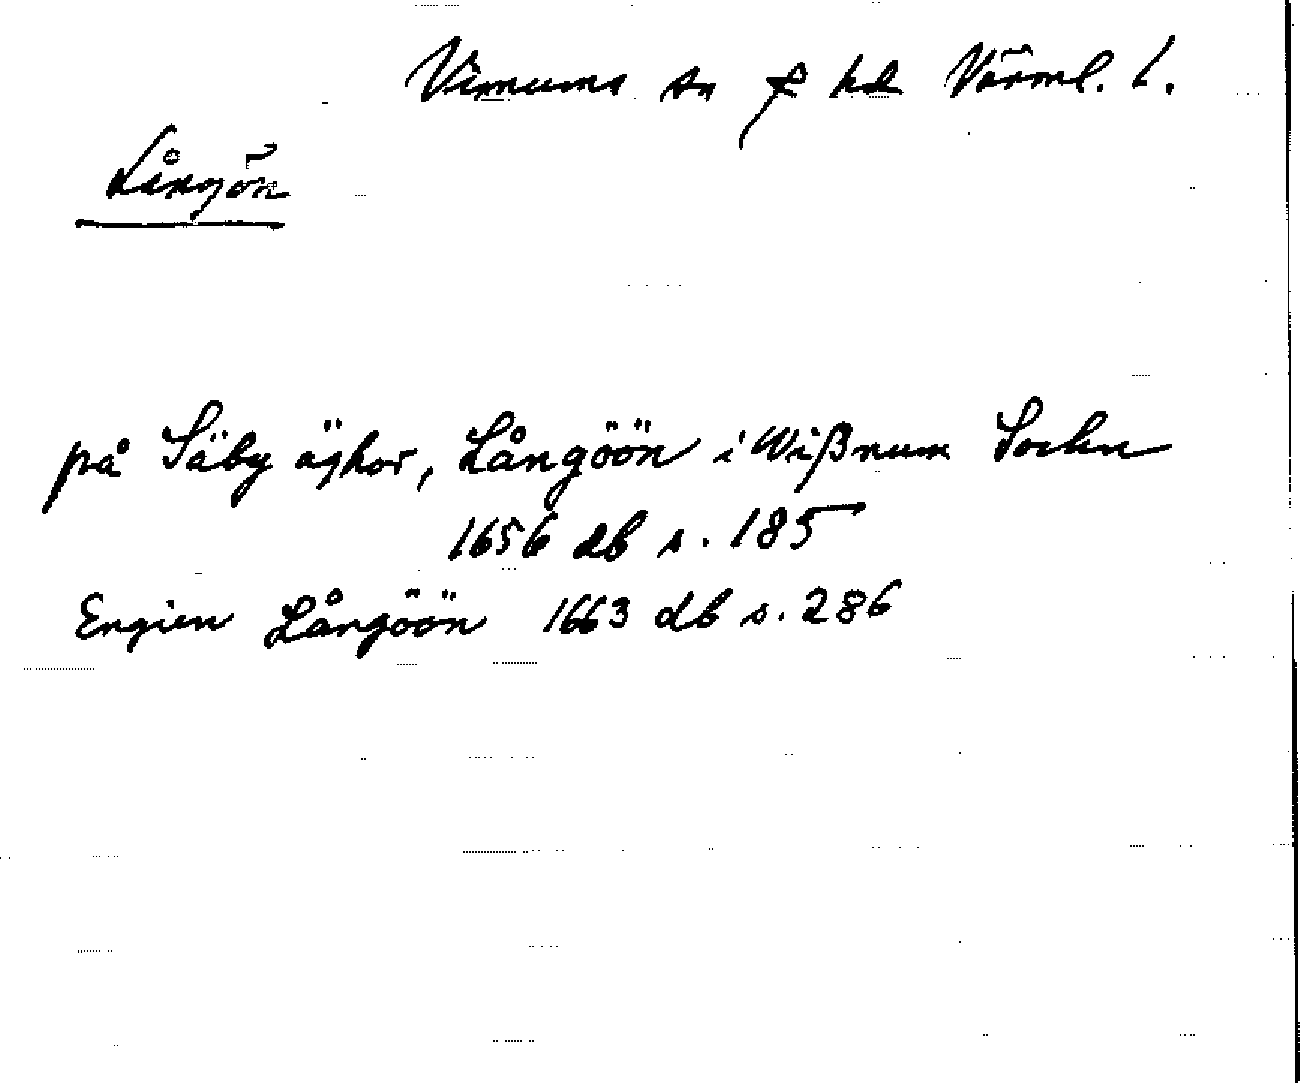 Visnums sn f hd Värml. l.
Långön
på Säby äghor, Långöön i Wißnum Sockn
1656 db s. 185
Engien Långöön 1663 db s. 286